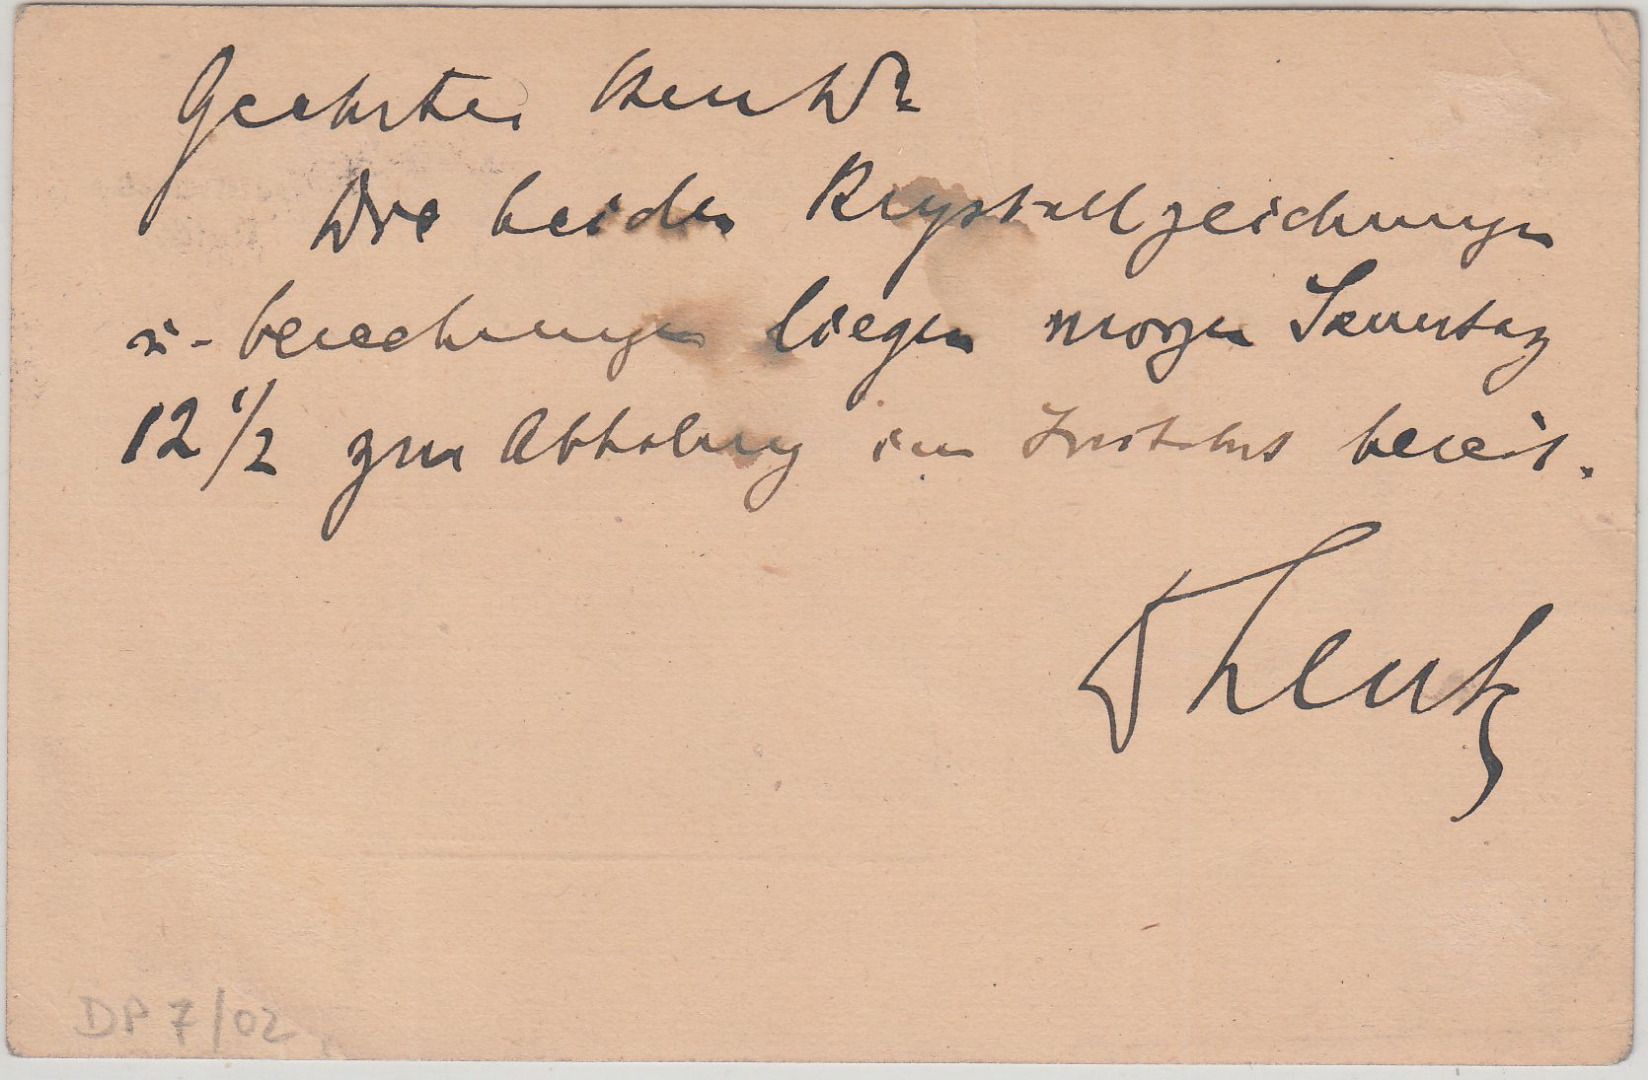 Geehrter Herr Dr
Die beiden Krystallzeichnungen
u. - berechnungen liegen morgen Sonntag
12 1/2 zur Abholung im Institut bereit.
DP 7/02